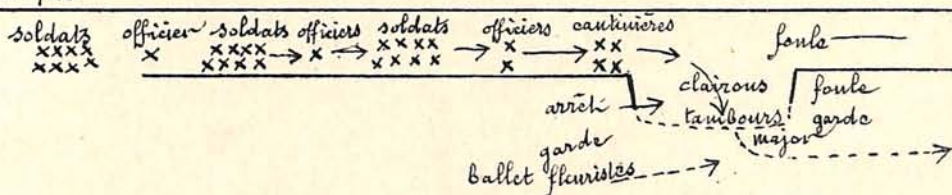 soldats officier soldats officiers soldats officiers cantinières foule
clairons foule
arrêt tambours garde
garde major
ballet fleuristes